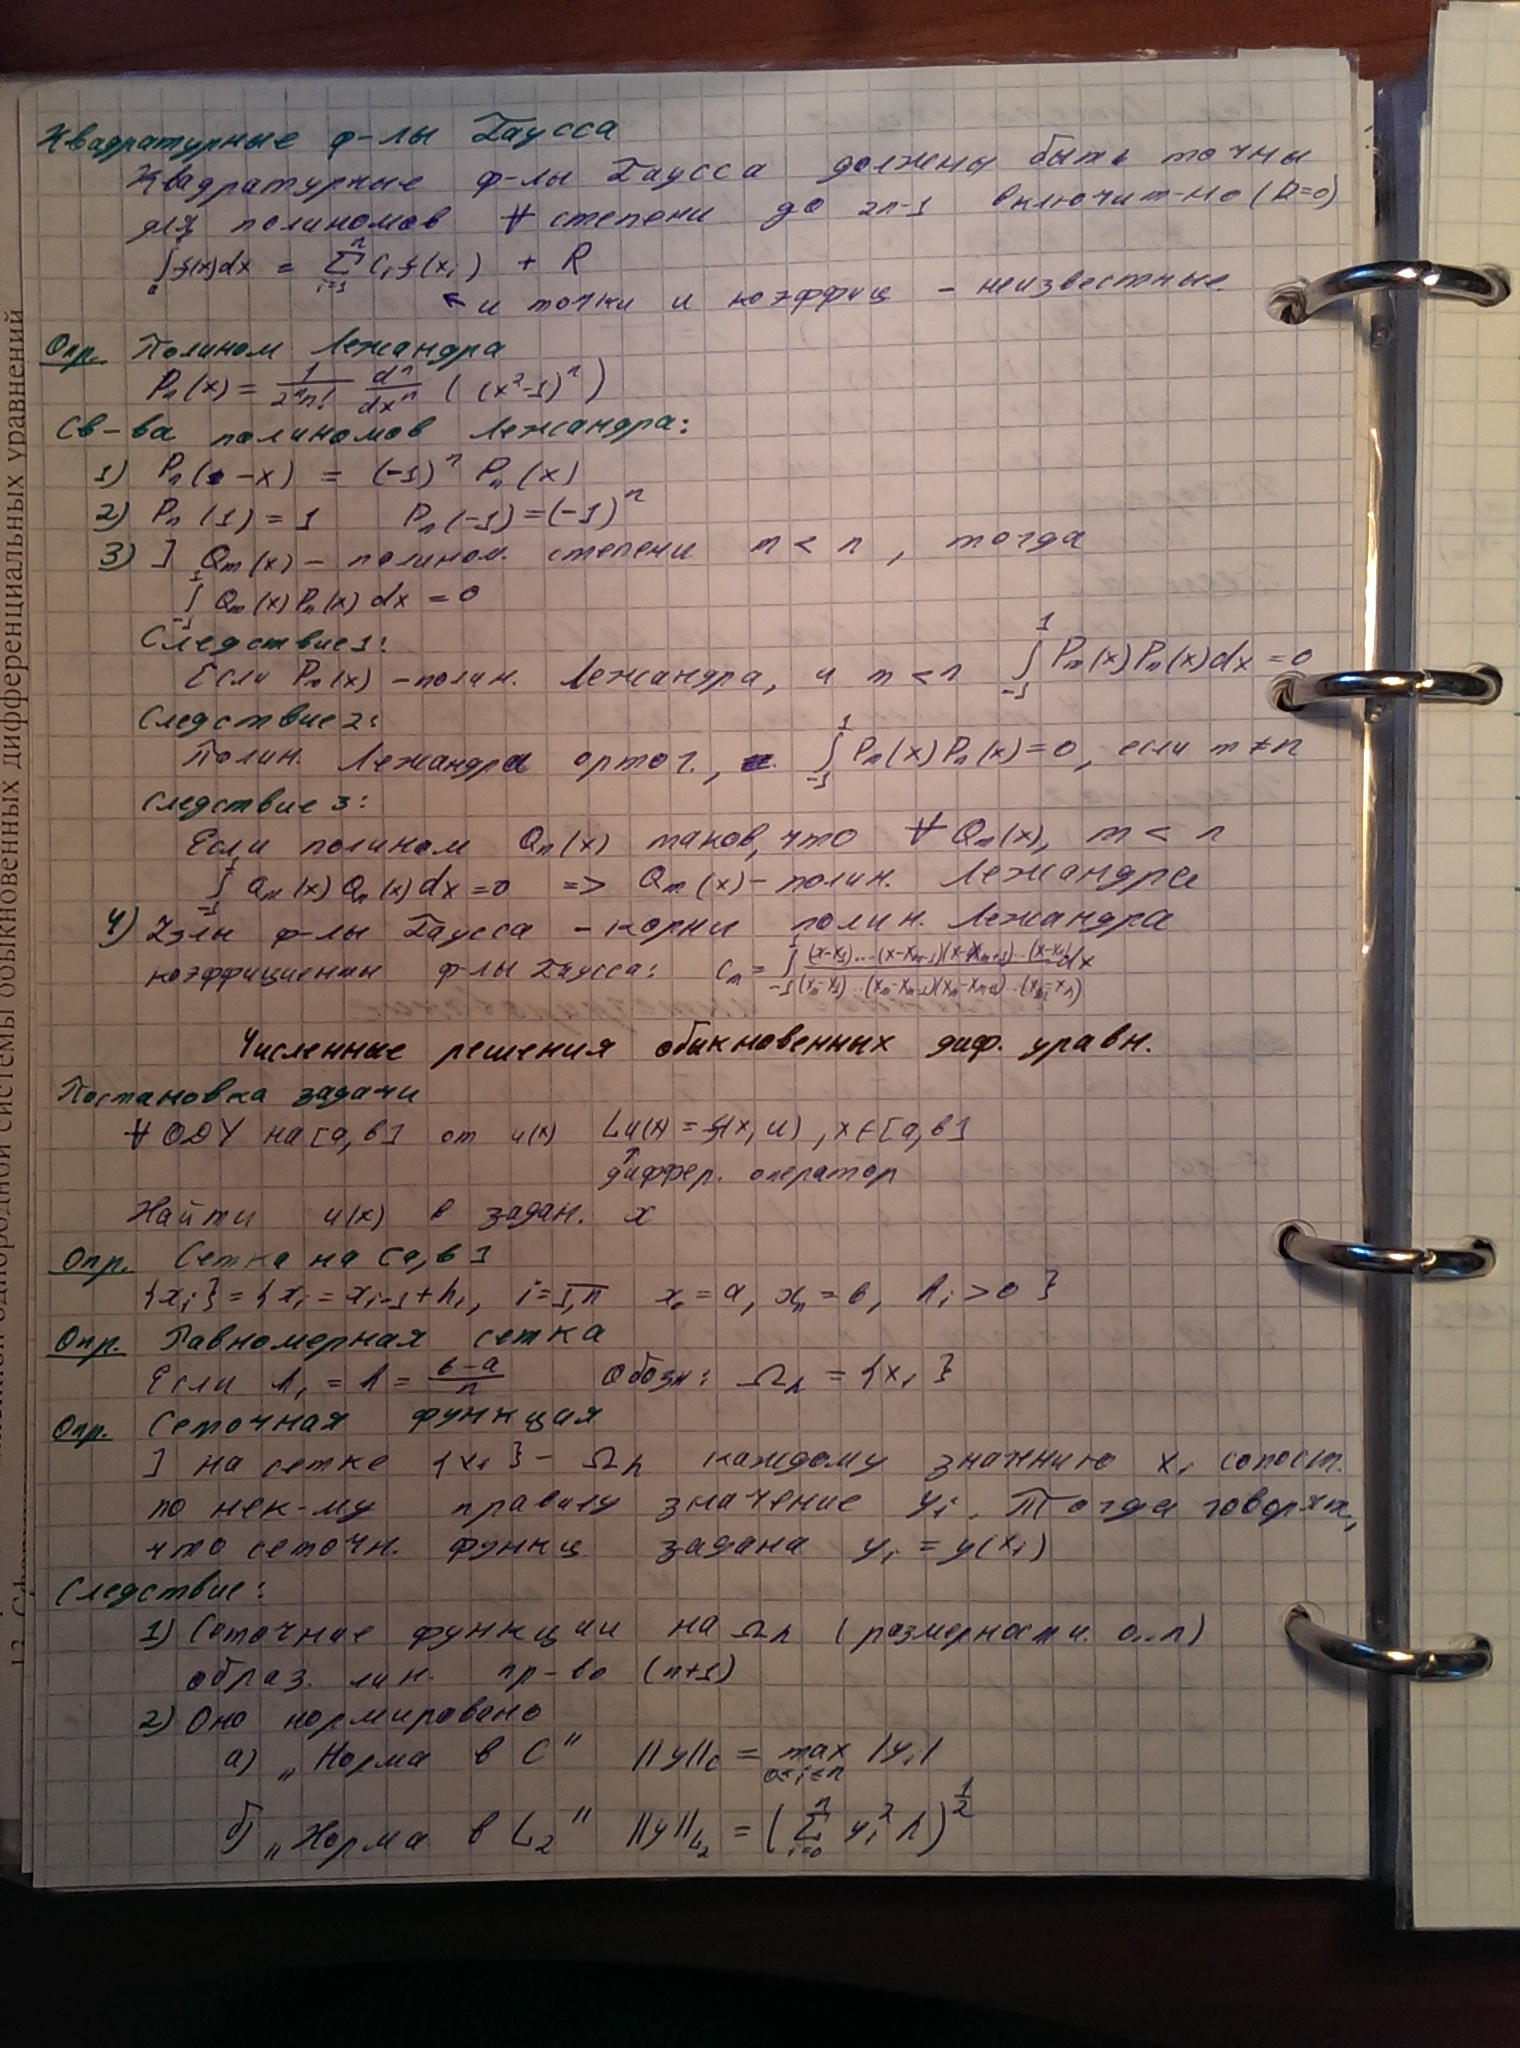 Квадратурные ф-лы Гаусса
Квадратурные ф-лы Гаусса должны быть точны
для полиномов ∀ степени до 2n-1 включит-но (R=0)
∫f(x)dx = Σ_{i=1}^{n} C_i f(x_i) + R
↖ и точки и коэффиц - неизвестные
Опр. Полином Лежандра
P_n(x) = 1/(2^n n!) d^n/dx^n ((x²-1)^n)
Св-ва полиномов Лежандра:
1) P_n(-x) = (-1)^n P_n(x)
2) P_n(1) = 1 P_n(-1) = (-1)^n
3) ] Q_m(x) - полином. степени m < n, тогда
∫_{-1}^{1} Q_m(x) P_n(x) dx = 0
Следствие 1:
Если P_m(x) - полин. Лежандра, и m < n ∫_{-1}^{1} P_m(x) P_n(x) dx = 0
Следствие 2:
Полин. Лежандра ортог., ∫_{-1}^{1} P_m(x) P_n(x) = 0, если m ≠ n
Следствие 3:
Если полином Q_n(x) таков, что ∀ Q_m(x), m < n
∫_{-1}^{1} Q_m(x) Q_n(x) dx = 0 => Q_m(x) - полин. Лежандра
4) Узлы ф-лы Гаусса - корни полин. Лежандра
коэффициенты ф-лы Гаусса: C_m = ∫_{-1}^{1} (x-x_1)...(x-x_{m-1})(x-x_{m+1})...(x-x_n)/(x_m-x_1)...(x_m-x_{m-1})(x_m-x_{m+1})...(x_m-x_n) dx
Численные решения обыкновенных диф. уравн.
Постановка задачи
∀ ОДУ на [a, b] от u(x) Lu(x) = f(x, u), x∈[a, b]
↑
диффер. оператор
Найти u(x) в задан. x
Опр. Сетка на [a, b]
{x_i} = {x_i = x_{i-1} + h_i, i = 1,n x_0 = a, x_n = b, h_i > 0}
Опр. Равномерная сетка
Если h_i = h = (b-a)/n Обозн: Ω_h = {x_i}
Опр. Сеточная функция
] на сетке {x_i} - Ω_h каждому значению x_i сопост.
по нек-му правилу значение y_i. Тогда говорят,
что сеточн. функц задана y_i = y(x_i)
Следствие:
1) Сеточные функции на Ω_h (размерности 0..n)
образ. лин. пр-во (n+1)
2) Оно нормировано
а) „Норма в C" ||y||_C = max_{0≤i≤n} |y_i|
б) „Норма в L_2" ||y||_{L_2} = (Σ_{i=0}^{n} y_i² h)^{1/2}